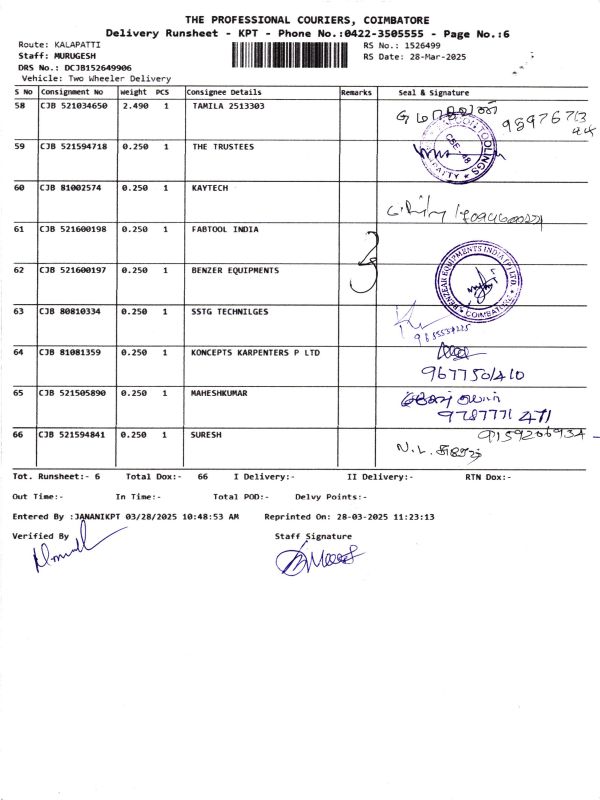 THE PROFESSIONAL COURIERS, COIMBATORE
Delivery Runsheet - KPT - Phone No.:0422-3505555 - Page No.:6
Route: KALAPATTI RS No.: 1526499
Staff: MURUGESH RS Date: 28-Mar-2025
DRS No.: DCJB152649906
Vehicle: Two Wheeler Delivery
S No Consignment No Weight PCS Consignee Details Remarks Seal & Signature
58 CJB 521034650 2.490 1 TAMILA 2513303
59 CJB 521594718 0.250 1 THE TRUSTEES
60 CJB 81002574 0.250 1 KAYTECH
61 CJB 521600198 0.250 1 FABTOOL INDIA
62 CJB 521600197 0.250 1 BENZER EQUIPMENTS
BENZEAR EQUIPMENTS INDIA (P) LTD. COIMBATORE
63 CJB 80810334 0.250 1 SSTG TECHNILGES
64 CJB 81081359 0.250 1 KONCEPTS KARPENTERS P LTD
9677501410
65 CJB 521505890 0.250 1 MAHESHKUMAR
9787771 471
66 CJB 521594841 0.250 1 SURESH 9159206934
Tot. Runsheet:- 6 Total Dox:- 66 I Delivery:- II Delivery:- RTN Dox:-
Out Time:- In Time:- Total POD:- Delvy Points:-
Entered By :JANANIKPT 03/28/2025 10:48:53 AM Reprinted On: 28-03-2025 11:23:13
Verified By Staff Signature